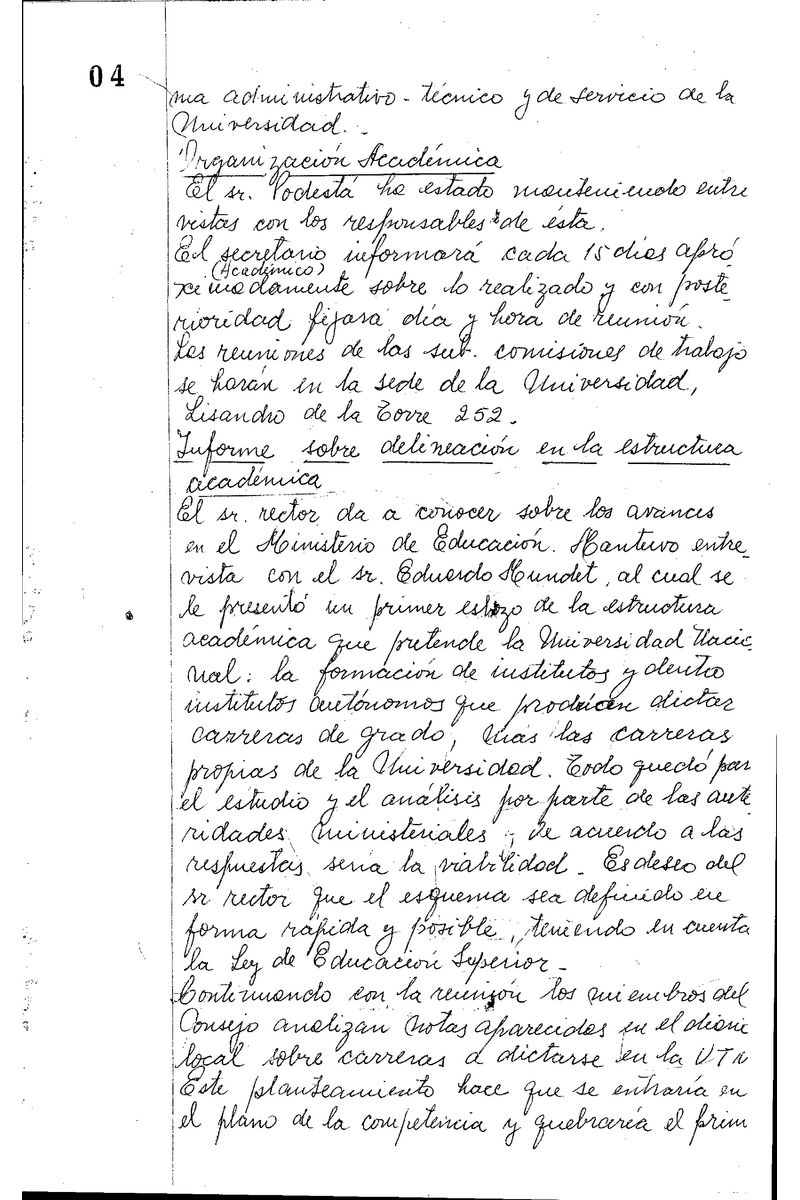 04
ma administrativo - técnico y de servicio de la
Universidad. -
Organización Académica
El sr. Podestá ha estado manteniendo entre
vistas con los responsables de ésta.
El secretario informará cada 15 días apró
(Académico)
ximadamente sobre lo realizado y con poste_
rioridad fijará día y hora de reunión.
Las reuniones de las sub. comisiones de trabajo
se harán en la sede de la Universidad,
Lisandro de la Torre 252.
Informe sobre delineación en la estructura
académica
El sr. rector da a conocer sobre los avances
en el Ministerio de Educación. Mantuvo entre_
vista con el sr. Eduardo Mundet, al cual se
le presentó un primer esbozo de la estructura
académica que pretende la Universidad Nacio
nal: la formación de institutos y dentro
institutos autónomos que podrían dictar
carreras de grado, más las carreras
propias de la Universidad. Todo quedó par
el estudio y el análisis por parte de las auto
ridades ministeriales, de acuerdo a las
respuestas sería la viabilidad. Es deseo del
sr rector que el esquema sea definido en
forma rápida y posible, teniendo en cuenta
la Ley de Educación Superior -
Continuando con la reunión los miembros del
Consejo analizan notas aparecidas en el diario
local sobre carreras a dictarse en la UTN
Este planteamiento hace que se entraría en
el plano de la competencia y quebraría el prim